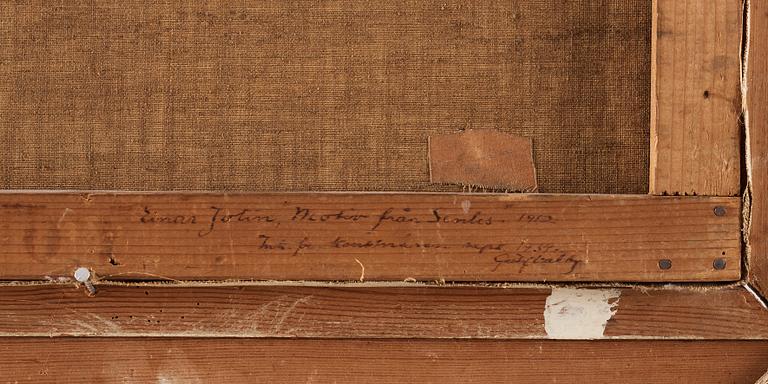 Einar Jolin, Motiv från Senlis. 1912.
Ink. fr. konstnären sept. 1951.